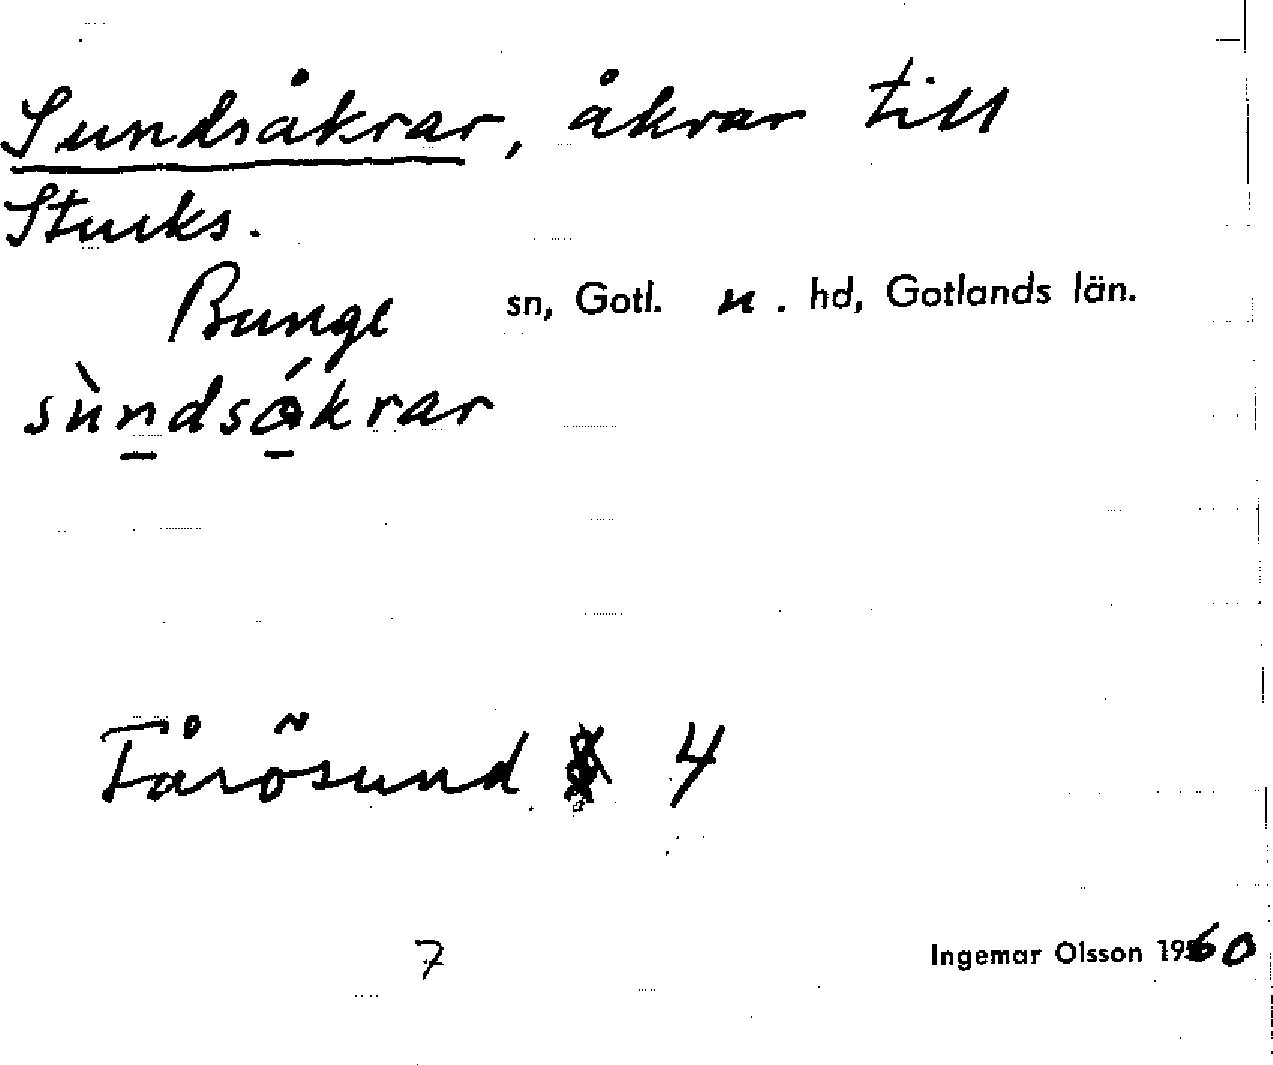 Sundsåkrar, åkrar till
Stucks.
Bunge sn, Gotl. n. hd, Gotlands län.
sùndsåkrar
Fårösund 4
7
Ingemar Olsson 1960